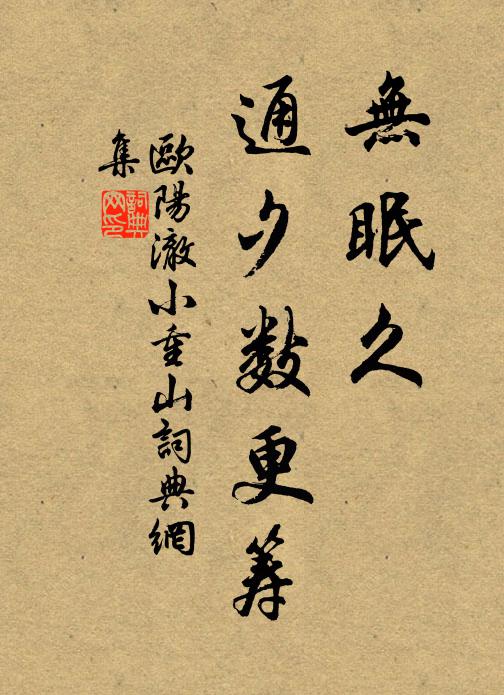 無眠久
通夕数更筹
歐陽澈小重山詞典網
集
詞典
网印